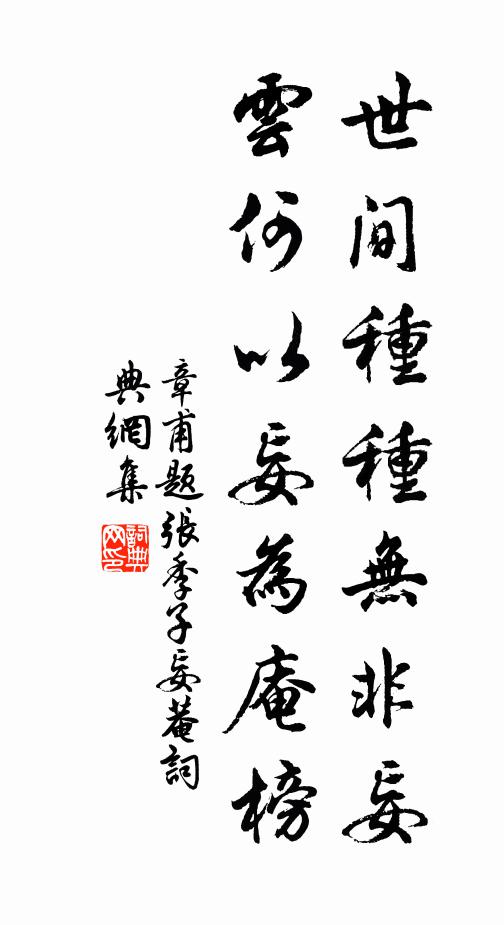 世间種種無非妄
雲何以妄為庵榜
章甫题張季子妄菴詞
典網集
詞典網印